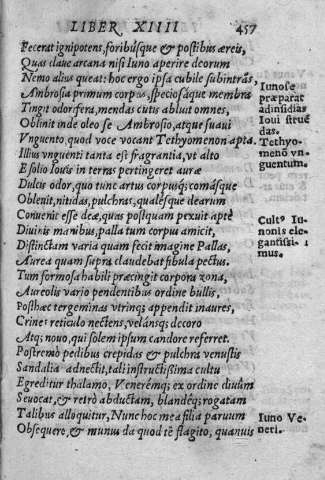 LIBER XIIII 457
Fecerat ignipotens, foribúsque & postibus æreis,
Quas claue arcana nisi Iuno aperire deorum
Nemo alius queat: hoc ergo ipsa cubile subintrãs,
Ambrosia primum corpus, speciosáque membra
Tingit odorifera, mendas cutis abluit omnes,
Oblinit inde oleo se Ambrosio, atque suaui
Vnguento, quod voce vocant Tethyomenon apta.
Illius vnguenti tanta est fragrantia, vt alto
E solio Iouis in terras pertingeret auræ
Dulcis odor, quo tunc artus corpusq; comásque
Obleuit, nitidas, pulchras, qualésque dearum
Conuenit esse deæ, quas postquam pexuit aptè
Diuinis manibus, palla tum corpus amicit,
Distinctam varia quam fecit imagine Pallas,
Aurea quam supra claudebat fibula pectus.
Tum formosa habili præcingit corpora zona,
Aureolis vario pendentibus ordine bullis,
Posthæc tergeminas vtrinq; appendit inaures,
Crines reticulo nectens, velánsq; decoro
Atq; nouo, qui solem ipsum candore referret.
Postremò pedibus crepidas & pulchra venustis
Sandalia adnectit, tali instructissima cultu
Egreditur thalamo, Venerémq; ex ordine diuûm
Seuocat, & retrò abductam, blandéq; rogatam
Talibus alloquitur, Nunc hoc mea filia paruum
Obsequere, & munus da quod tè flagito, quanuis
Iunosę
præparat
ad insidias
Ioui struẽ
das.
Tethyo-
menõ vn
guentum.
Cult⁹ Iu-
nonis ele
gantissi-
mus.
Iuno Ve-
neri.